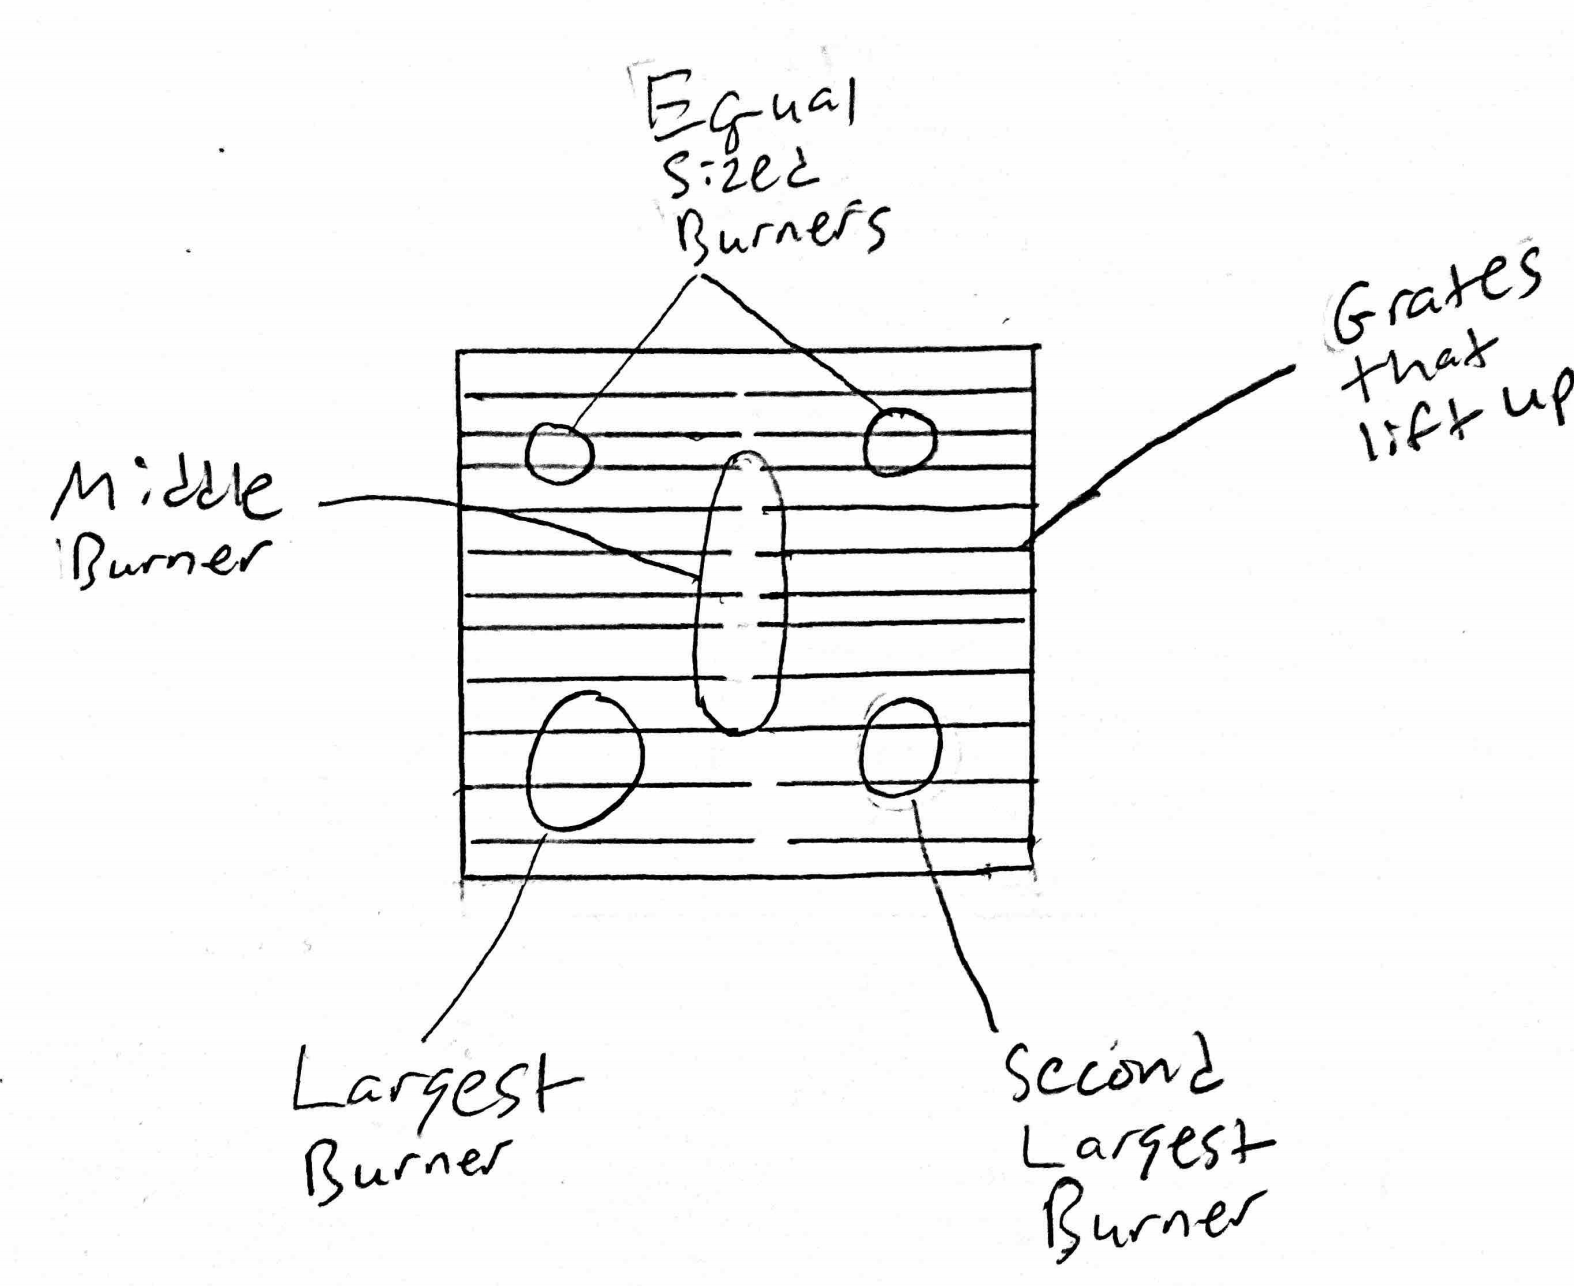 Equal
Sized
Burners
Grates
that
lift up
Middle
Burner
Largest
Burner
Second
Largest
Burner